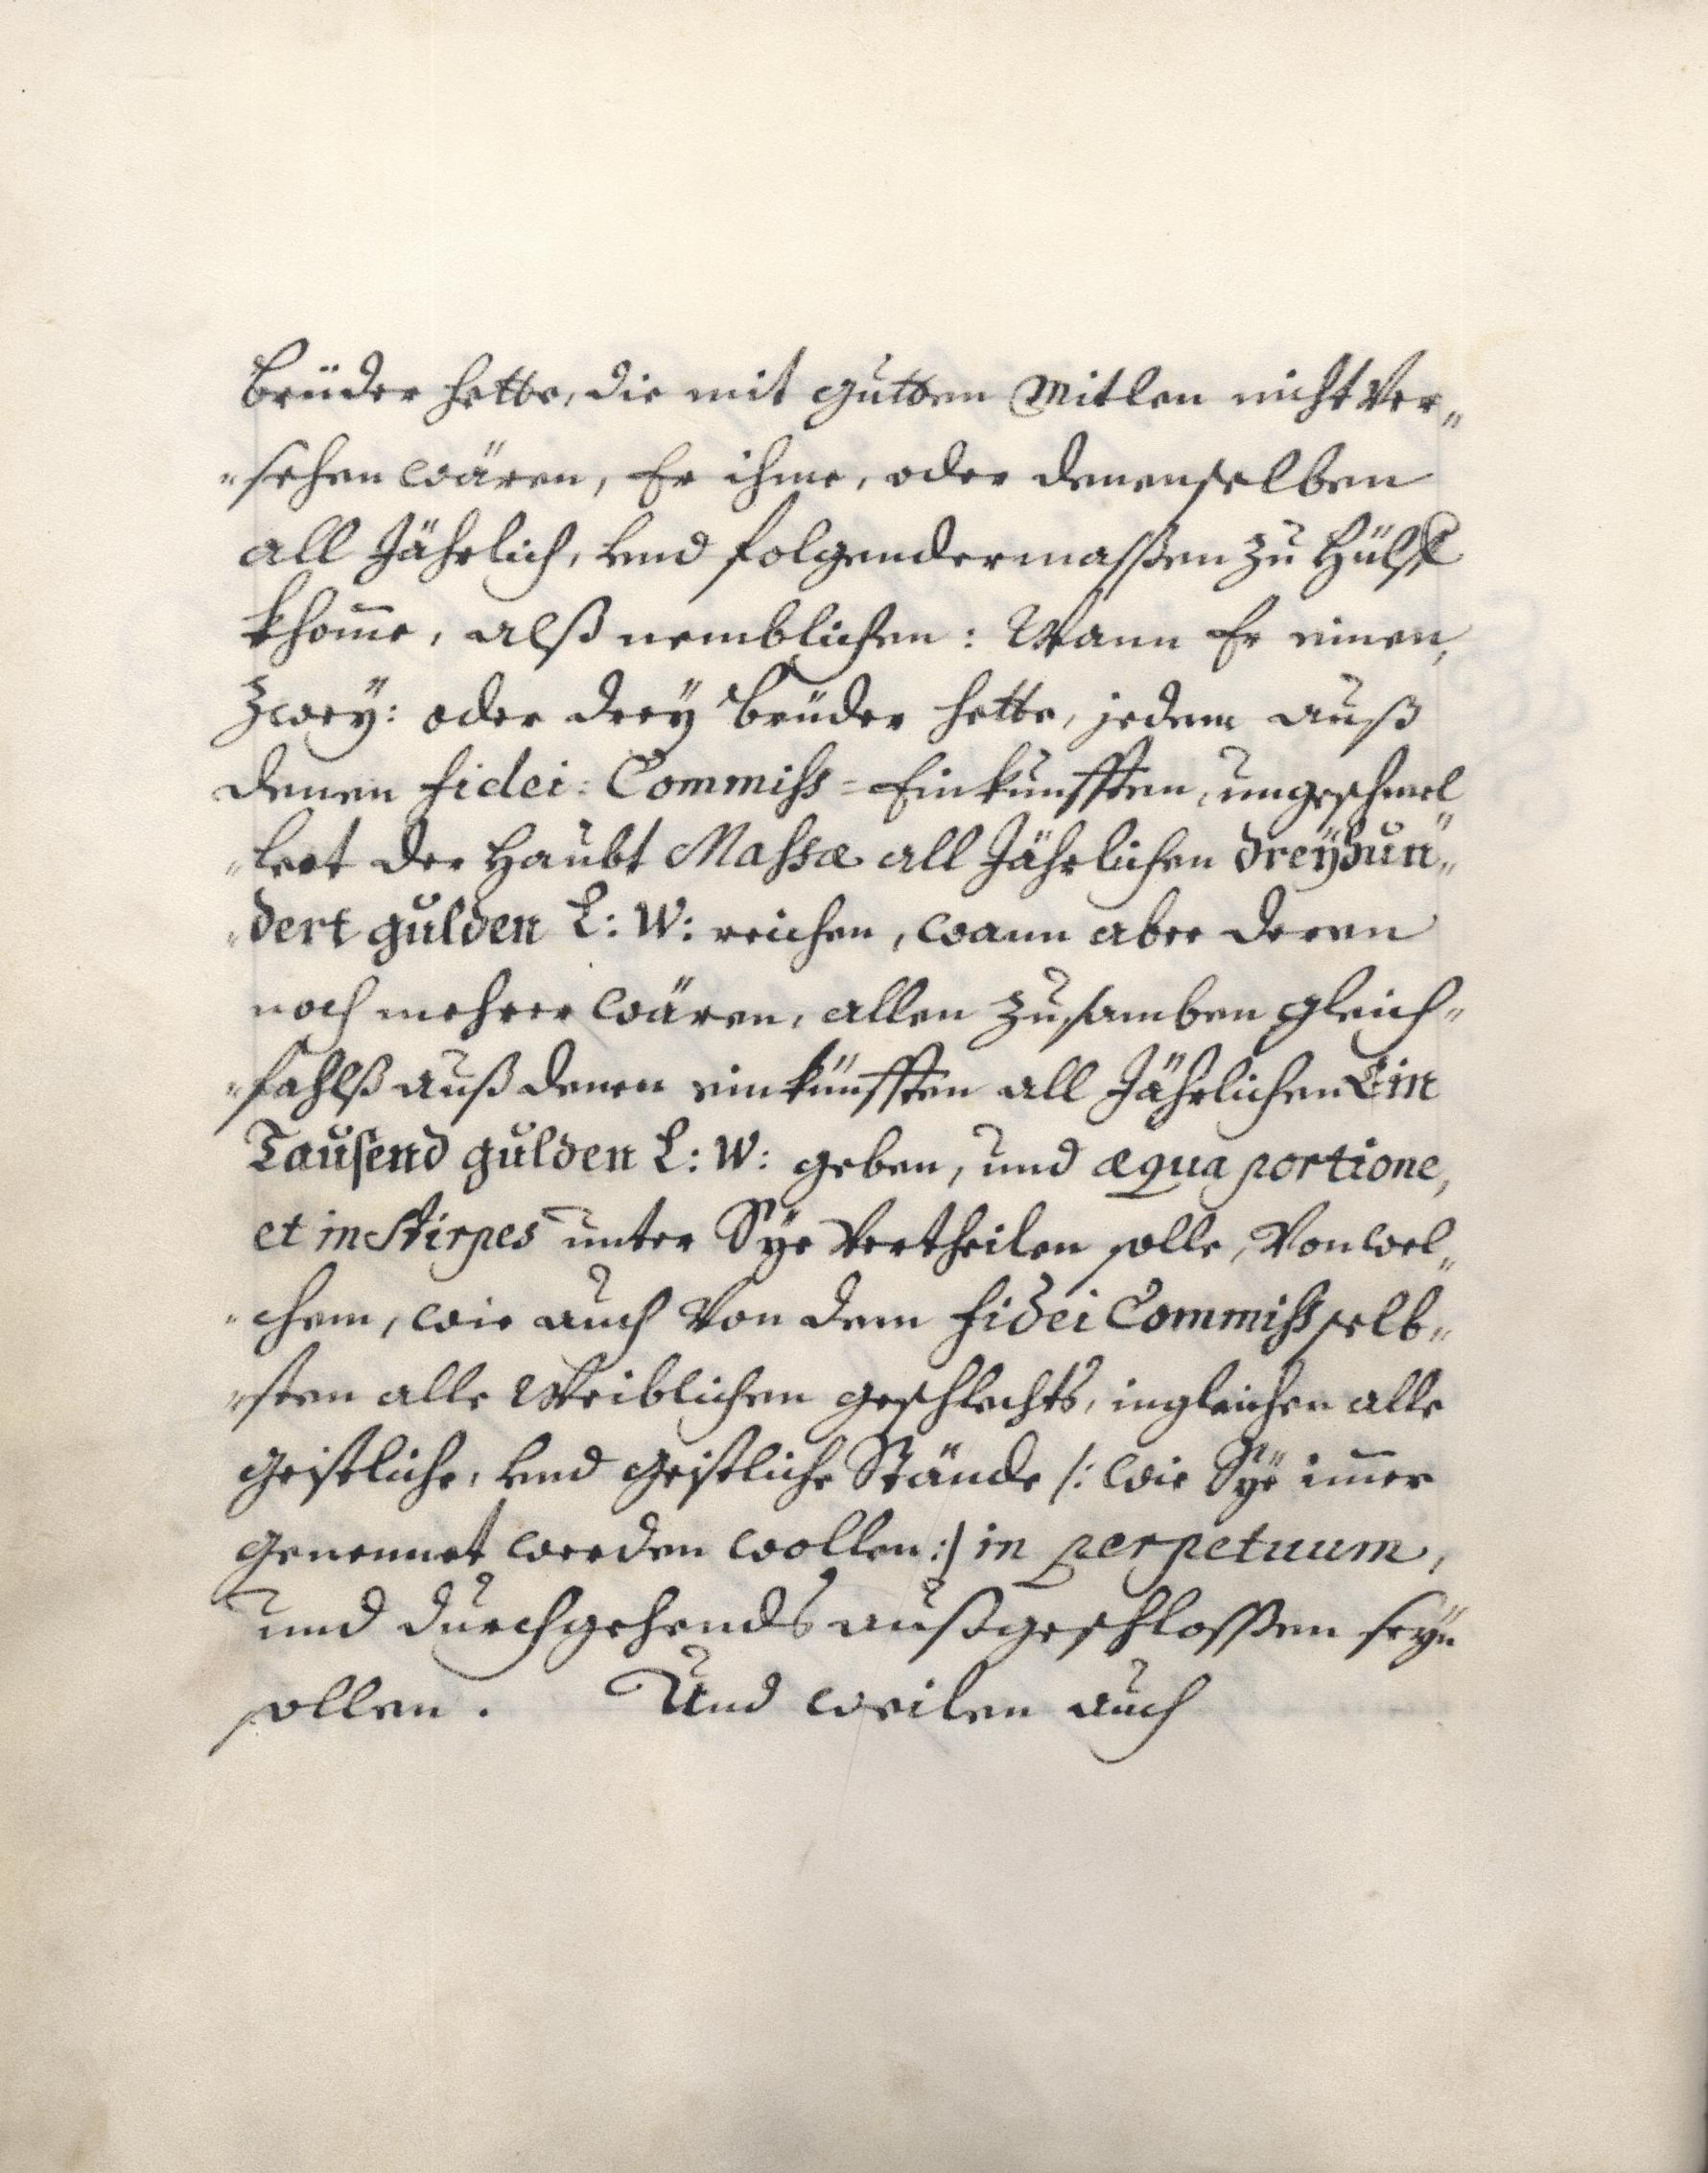 brüder hette, die mit gutten Mitlen nicht Ver„
„sehen wären, Er ihme, oder denenselben
all Jährlich, und folgendermassen zu Hülff
khom̅e, alß nemblichen: Wann Er einen,
zwey: oder dreÿ brüder hette, jedem auß
denen fidei: Commiss = Einkunfften, ungeschmel„
„lert der Haubt Massæ all Jährlichen dreÿhun„
„dert gulden L: W: reichen, wann aber deren
noch mehrer wären, allen zusamben gleich„
„fahlß auß denen einkünfften all Jährlichen Ein
Tausend gulden L: W: geben, und æqua portione,
et in stirpes unter Sÿe Vertheilen solle, Von wel„
„chem, wie auch Von dem fidei Commiss selb„
„sten alle Weiblichen geschlechts, ingleichen alle
geistliche, und geistliche Stände /: wie Sÿe im̅er
genennet werden wollen :/ in perpetuum,
und durchgehends außgeschlossen seÿn
sollen. Und weilen auch